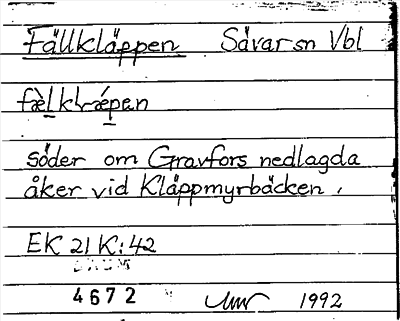 Fällkläppen Sävar sn Vbl
fæ̀lkLǽpen
söder om Gravfors nedlagda
åker vid Kläppmyrbäcken.
EK 21 K:42
4672 1992